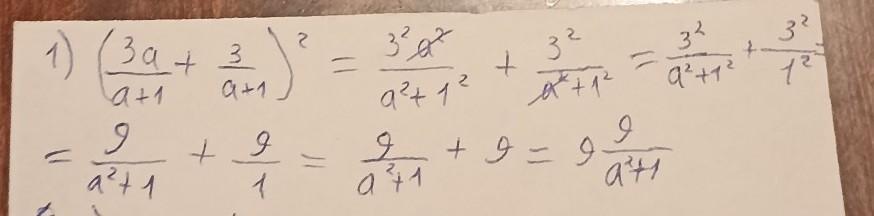 1) (3a/(a+1) + 3/(a+1))² = 3²a²/(a²+1²) + 3²/(a²+1²) = 3²/(a²+1²) + 3²/1² =
= 9/(a²+1) + 9/1 = 9/(a²+1) + 9 = 9 9/(a²+1)